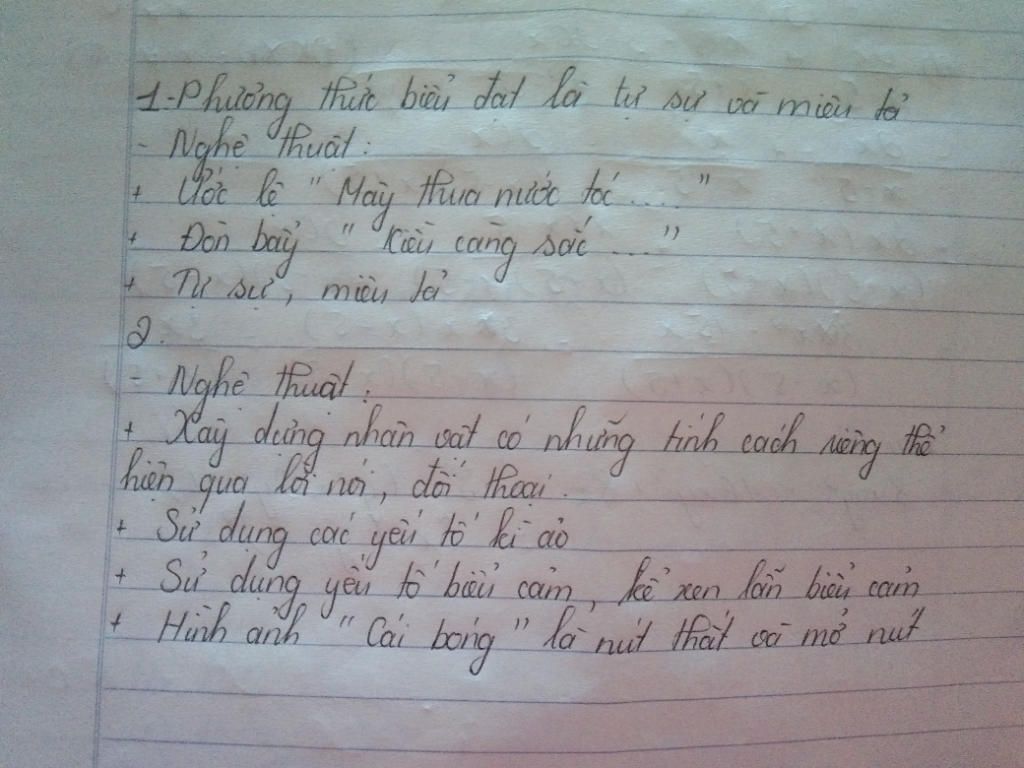 1-Phương thức biểu đạt là tự sự và miêu tả
- Nghệ thuật:
+ Ước lệ " Mây thua nước tóc .... "
+ Đòn bẩy " Kiều càng sắc ... "
+ Tự sự, miêu tả
2.
- Nghệ thuật:
+ Xây dựng nhân vật có những tính cách riêng thể
hiện qua lời nói, đối thoại.
+ Sử dụng các yếu tố kì ảo
+ Sử dụng yếu tố biểu cảm, kể xen lẫn biểu cảm
+ Hình ảnh " Cái bóng " là nút thắt và mở nút